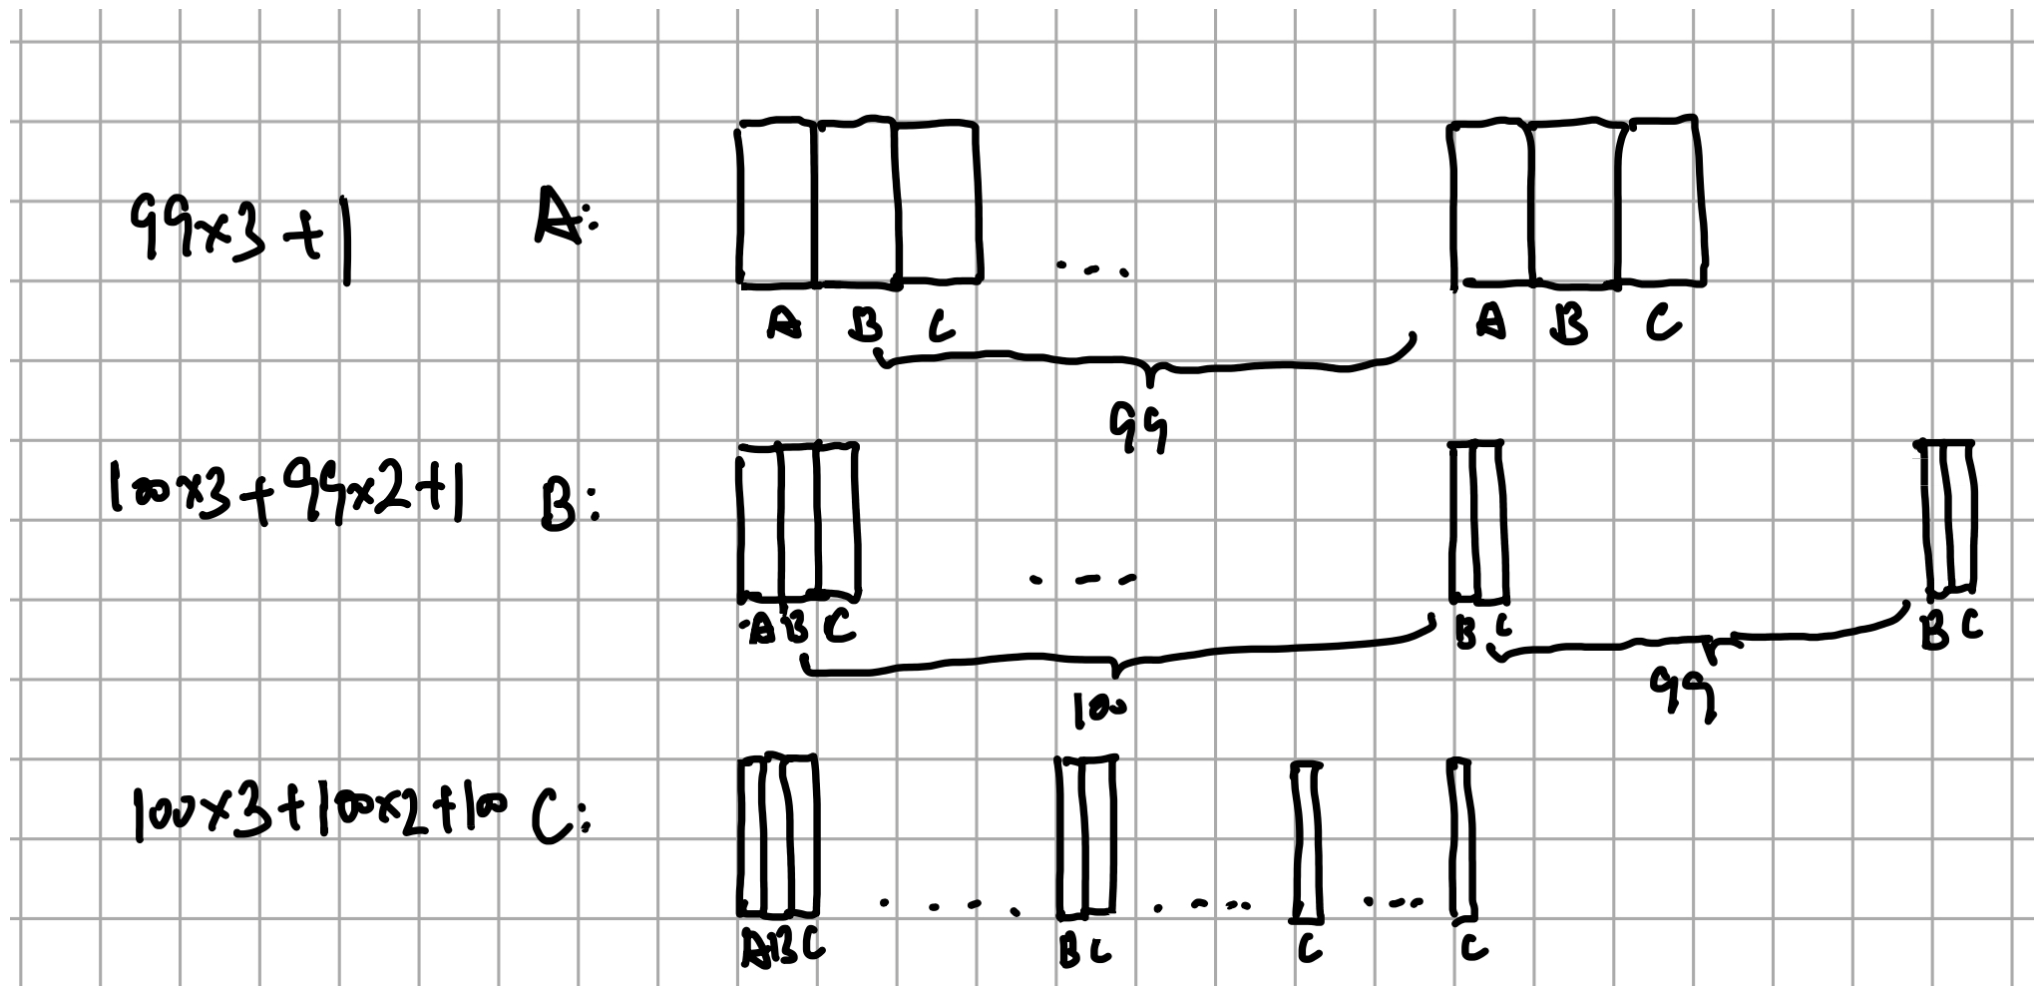 99×3+1 A:
A B C ... A B C
99
100×3+99×2+1 B:
A B C ... B C B C
100 99
100×3+100×2+100 C:
A B C .... B C .... C ... C